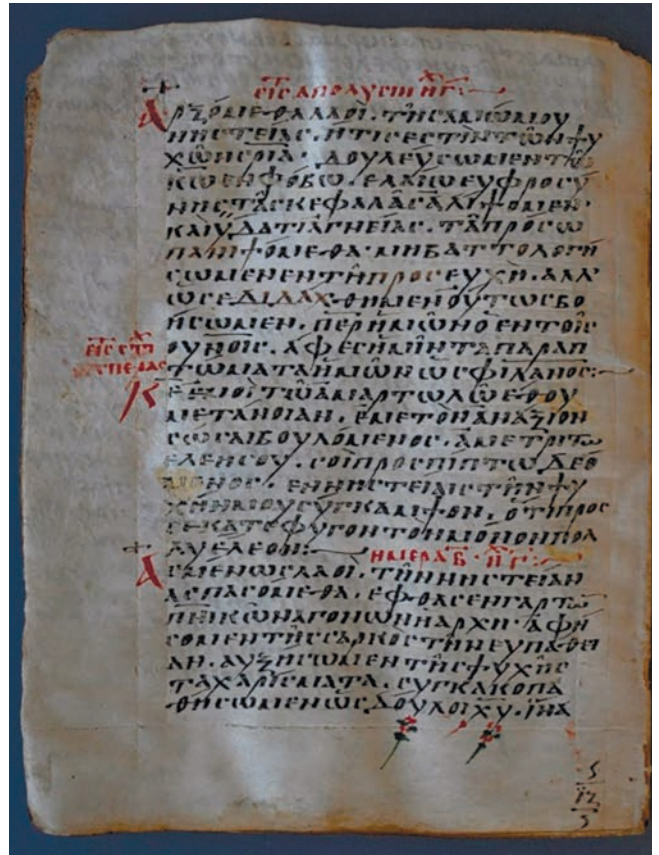 εἰς ἀπόλυσιν ἦχ γ
Ἀρξόμεθα λαοὶ. τῆς ἀμώμου
νηστείας. ἥτις ἐστὶν τῶν ψυ
χῶν σρία. δουλεύσωμεν τῶ
κω ἐν φόβω. ἐλαίω εὐφροσύ
νης τὰς κεφαλὰς ἀλίψομεν.
καὶ ὕδατι ἁγνείας. τὰ πρόσω
πα νιψόμεθα. μὴ βαττολογή
σωμεν ἐν τῆ προσευχῆ. ἀλλ
ὡς ἐδιδάχθημεν οὕτως βο
ήσωμεν. περ ἡμῶν ὁ ἐν τοῖς
ουνοῖς. ἄφες ἡμῖν τὰ παραπ
τώματα ἡμῶν ὡς φιλανος:
εἰς στχ
ἑσπέρας
Κε ἐμοὶ τῶ ἁμαρτωλῶ ἔθου
μετάνοιαν. ἐμὲ τὸν ἀνάξιον
σῶσαι βουλόμενος. ἀμετρίτω
ἐλέη σου. σοὶ προσπίπτω δεό
μενος. ἐν νηστείαις τὴν ψυ
χήν μου σύγκαμψον. ὅτι πρὸς
σε κατέφυγον τὸν μόνον πολ
λυέλεον:
ἡμέρα β ἦχ γ
Ἀσμένως λαοὶ. τὴν νηστείαν
ἀσπασόμεθα. ἔφθασεν γὰρ τῶ
πνικῶν ἀγόνων ἡ ἀρχή. ἀφή
σομεν τῆς σαρκὸς τὴν εὐπάθει
αν. αὐξήσωμεν τῆς ψυχῆς
τὰ χαρίσματα. συγκακοπα
θήσωμεν ὡς δοῦλοι χυ. ἵνα